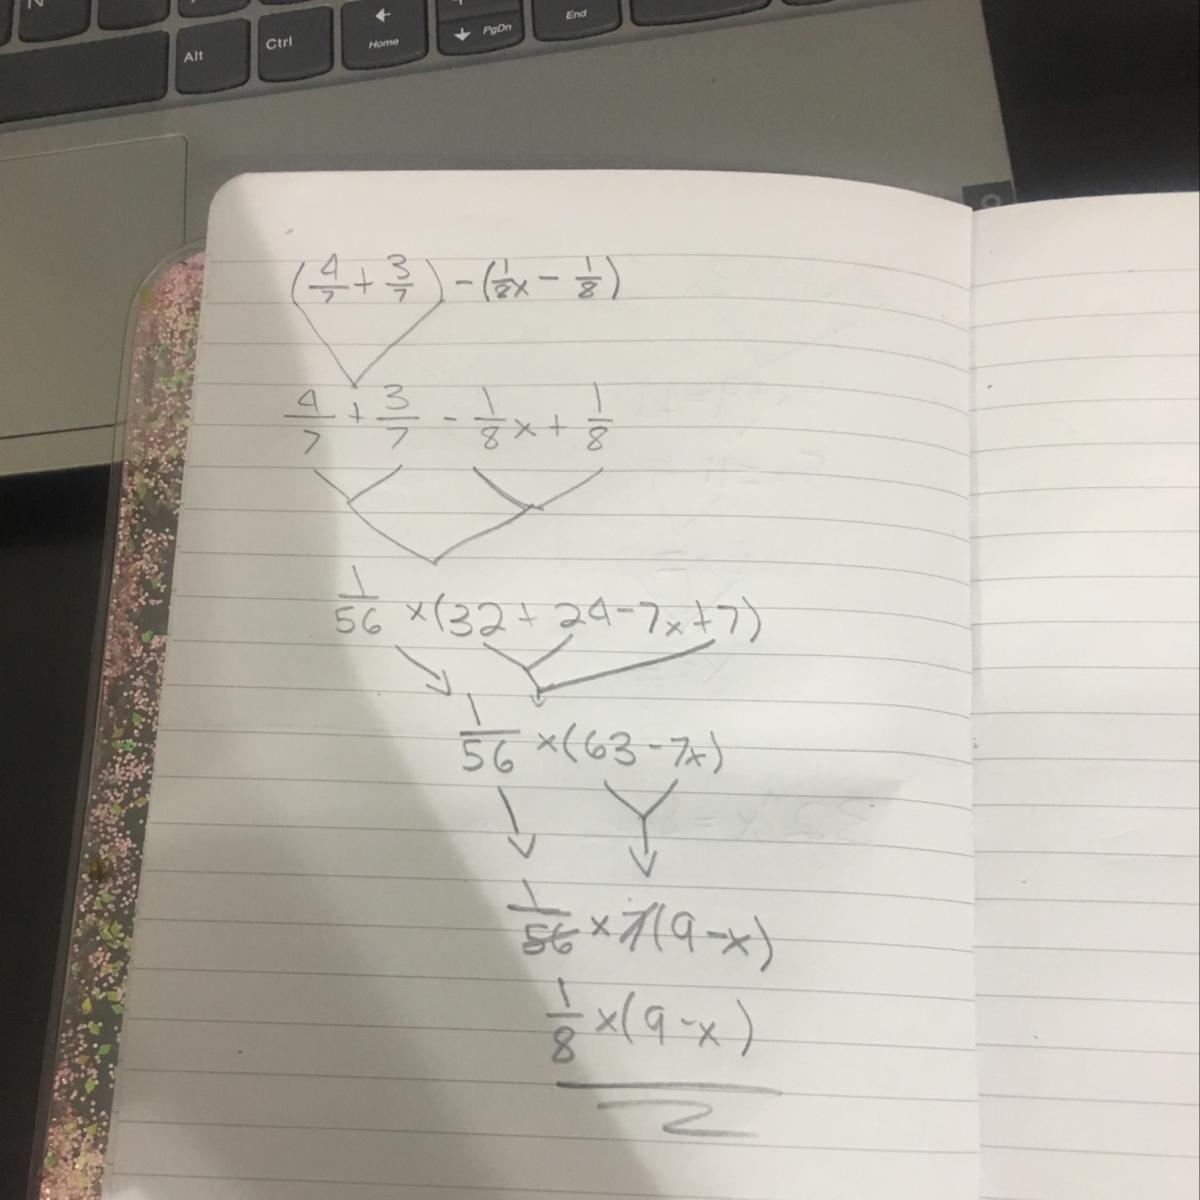 Alt Ctrl ← Home ↓ PgDn End
(4/7 + 3/7) - (1/8x - 1/8)
4/7 + 3/7 - 1/8 x + 1/8
1/56 ×(32 + 24-7x+7)
1/56 ×(63-7x)
1/56 × 7(9-x)
1/8 ×(9-x)